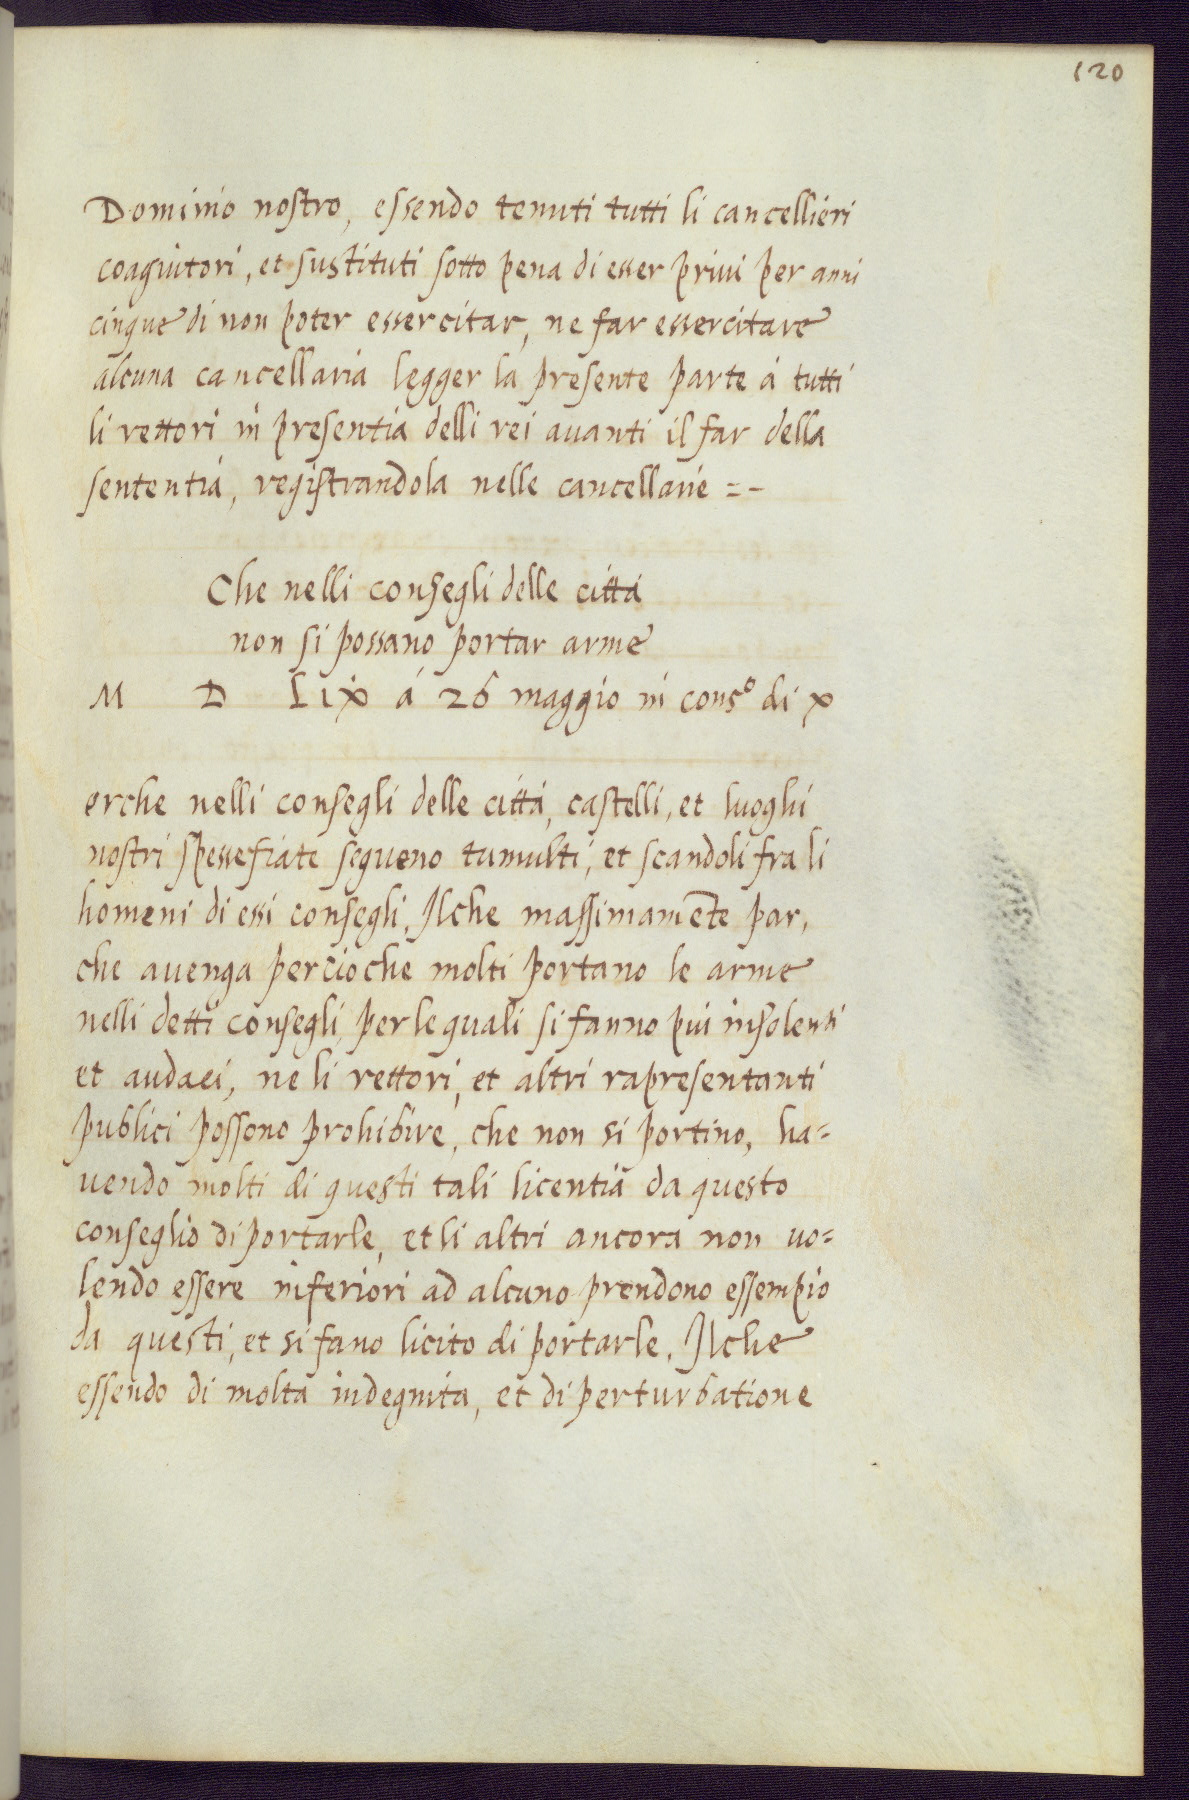 120
Dominio nostro, essendo tenuti tutti li cancellieri
coagiutori, et sustituti sotto pena di esser privi per anni
cinque di non poter essercitar, ne far essercitare
alcuna cancellaria legger la presente parte á tutti
li rettori in presentia delli rei auanti il far della
sententia, registrandola nelle cancellarie =-
Che nelli consegli delle cittá
non si possano portar arme
M D Lix á 26 maggio in cons.º di x
erche nelli consegli delle cittá, castelli, et luoghi
nostri spessefiate segueno tumulti, et scandoli fra li
homeni di essi consegli. Ilche massimamẽte par,
che auenga percioche molti portano le arme
nelli detti consegli, per le quali si fanno piu insolenti
et audaci, ne li rettori, et altri rapresentanti
publici possono prohibire, che non si portino, ha=
uendo molti di questi tali licentia da questo
conseglio di portarle, et li altri ancora non uo=
lendo essere inferiori ad alcuno prendono essempio
da questi, et si fano licito di portarle. Ilche
essendo di molta indegnita, et di perturbatione